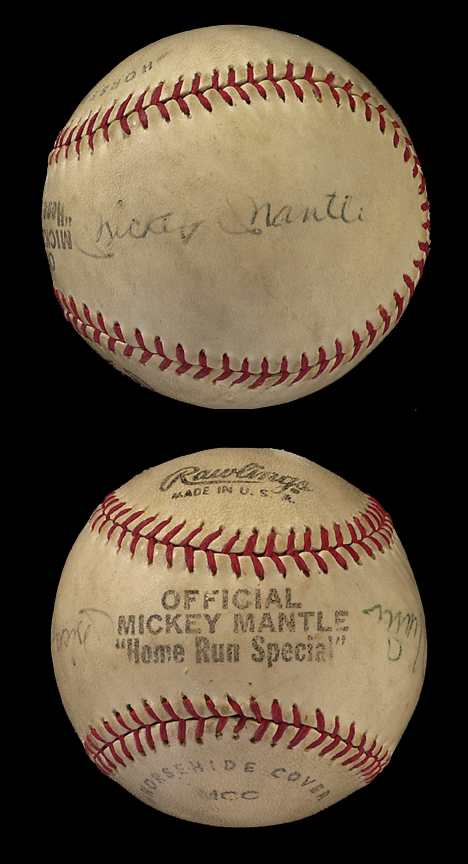 HORSE
MICK
"Home
Mickey Mantle
Rawlings
MADE IN U.S.A.
OFFICIAL
MICKEY MANTLE
"Home Run Special"
HORSEHIDE COVER
MCC